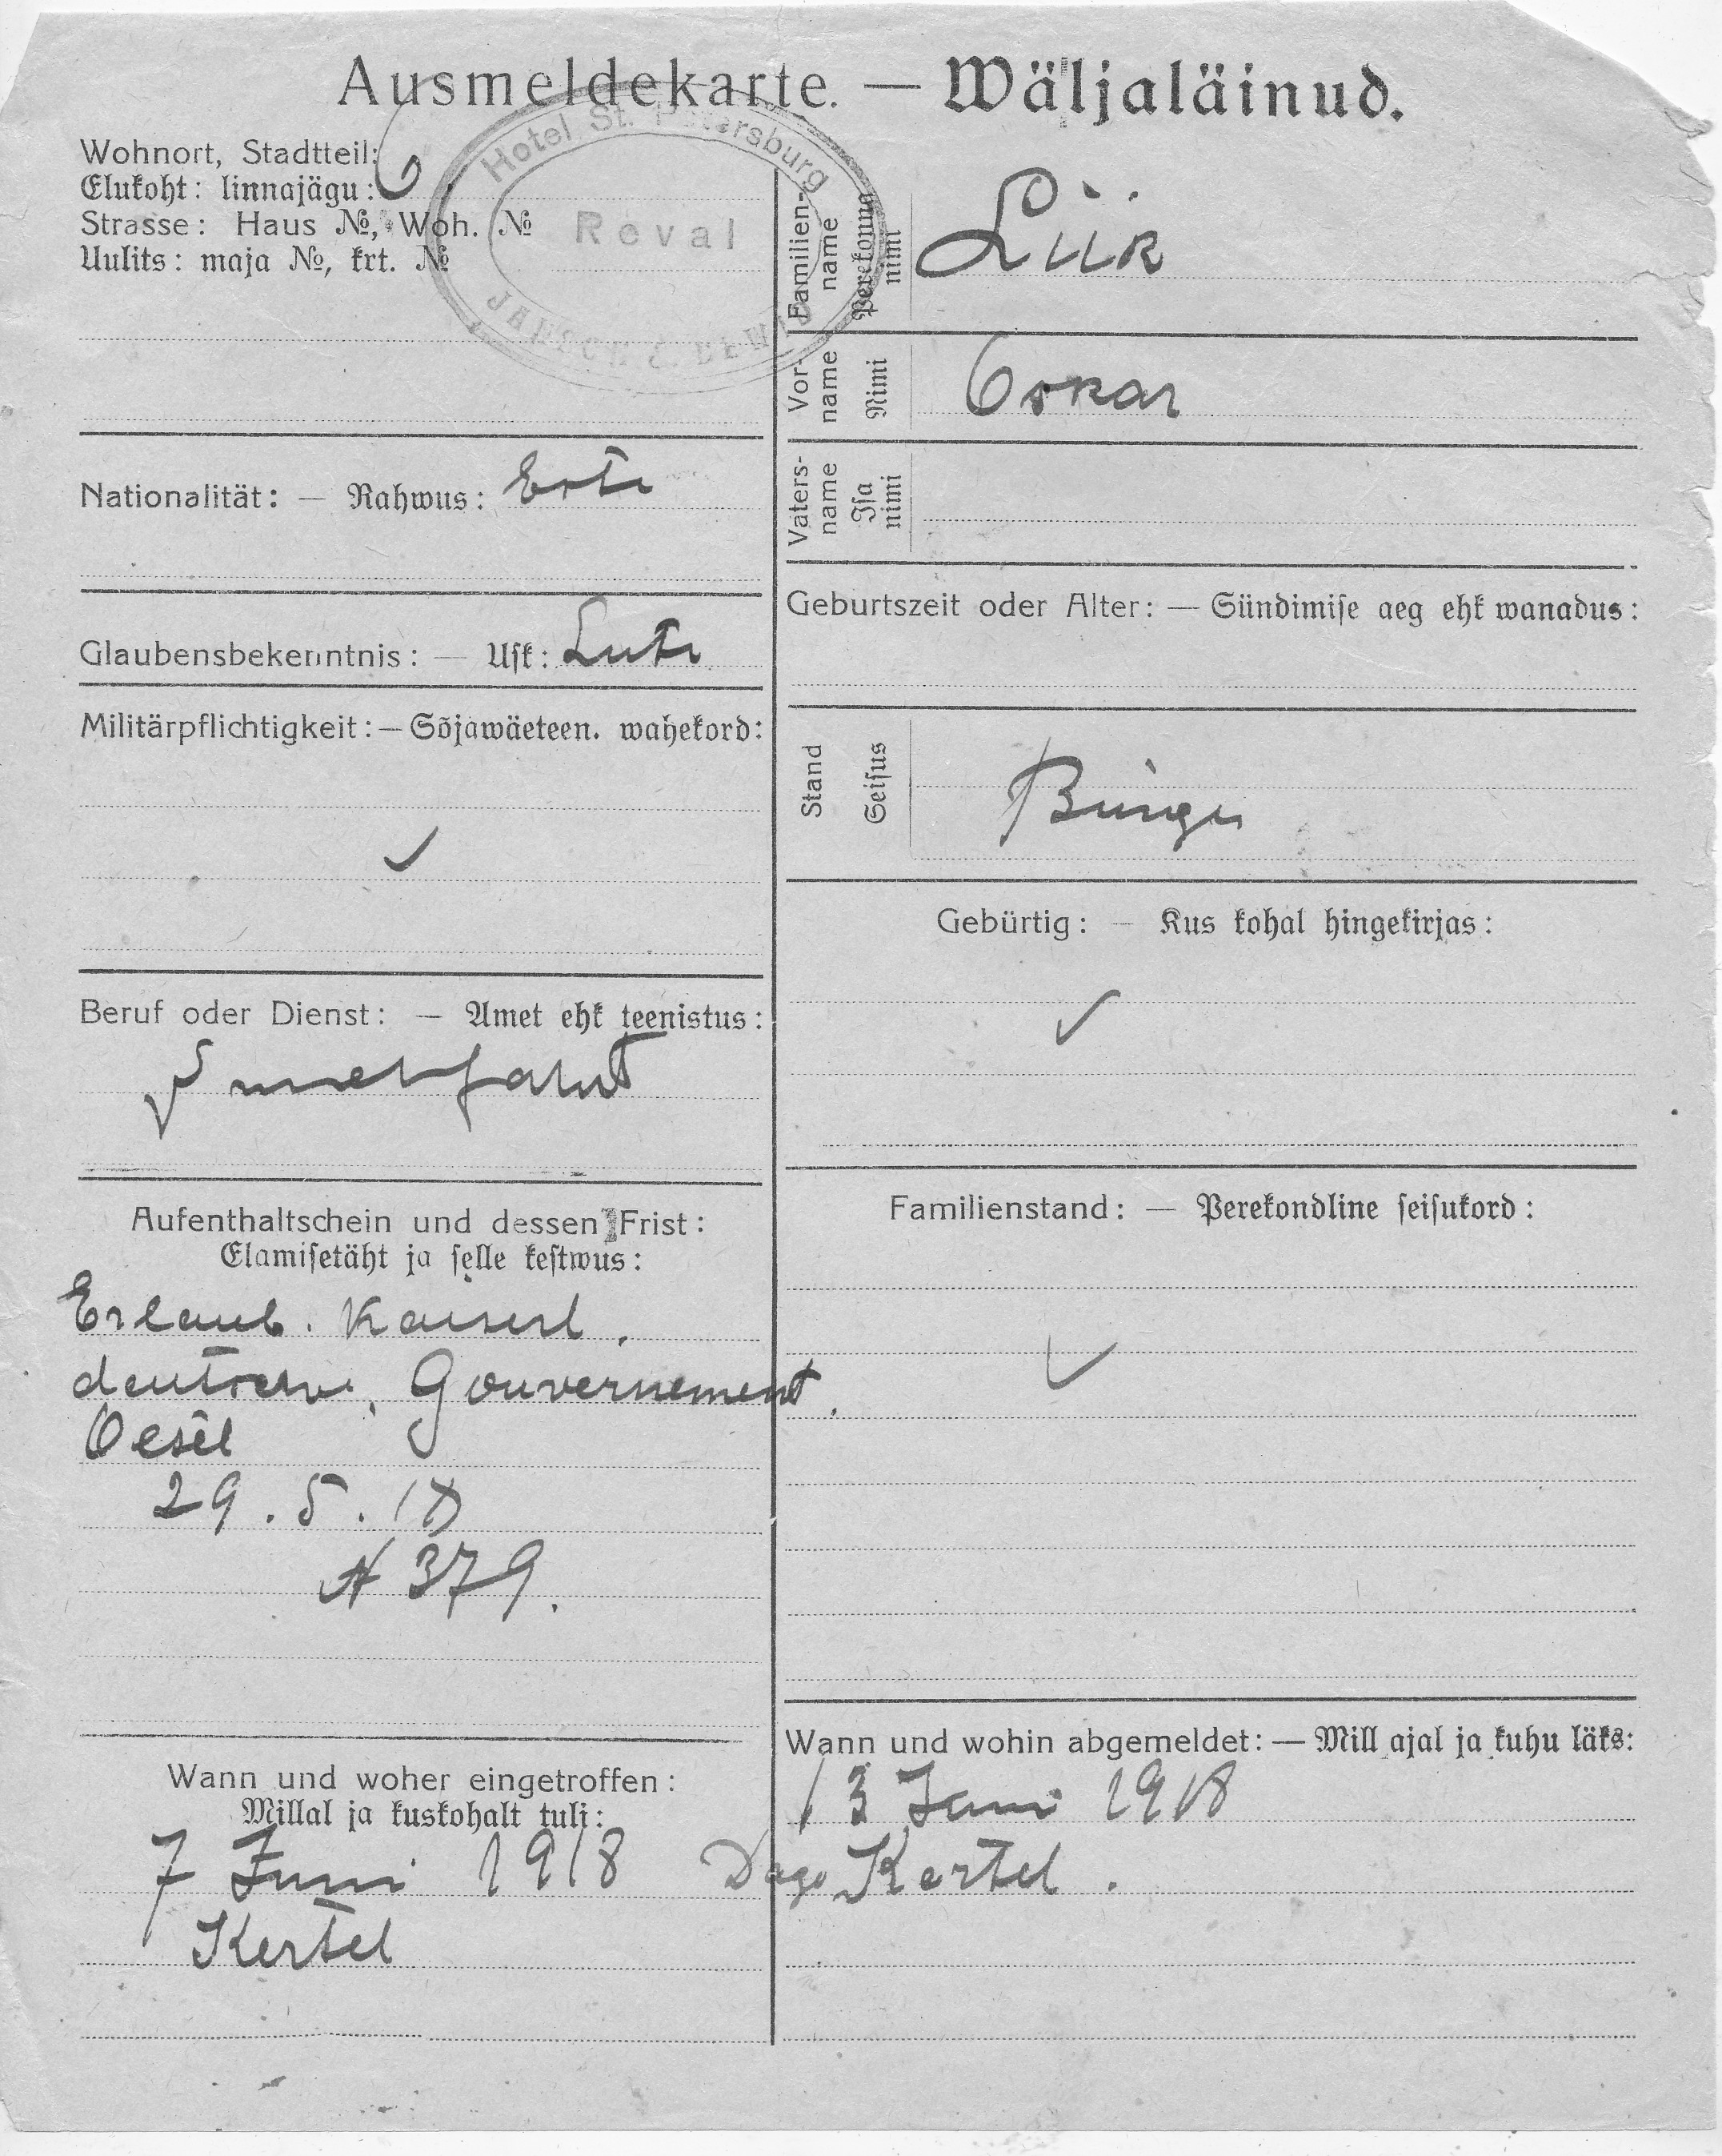 Ausmeldekarte. — Wäljaläinud.
Wohnort, Stadtteil: 6
Elukoht: linnajägu:
Strasse: Haus №, Woh. №
Uulits: maja №, krt. №
Hotel St. Petersburg
Reval
Familien-name Perekonna nimi Liik
Vor-name Nimi Oskar
Vaters-name Isa nimi
Nationalität: — Rahwus:
Glaubensbekenntnis: — Usk: Luth
Militärpflichtigkeit: — Sõjawäeteen. wahekord:
✓
Beruf oder Dienst: — Amet ehk teenistus:
Aufenthaltschein und dessen Frist:
Elamisetäht ja selle kestwus:
Erlaub. Kaiserl.
deutschen. Gouvernement.
Oesel
29. 5. 18
№ 379.
Wann und woher eingetroffen:
Millal ja kuskohalt tuli:
7 Juni 1918
Kertel
Geburtszeit oder Alter: — Sündimise aeg ehk wanadus:
Stand Seisus Bürger
Gebürtig: — Kus kohal hingekirjas:
✓
Familienstand: — Perekondline seisukord:
✓
Wann und wohin abgemeldet: — Mill ajal ja kuhu läks:
13 Juni 1918
Dago Kertel.